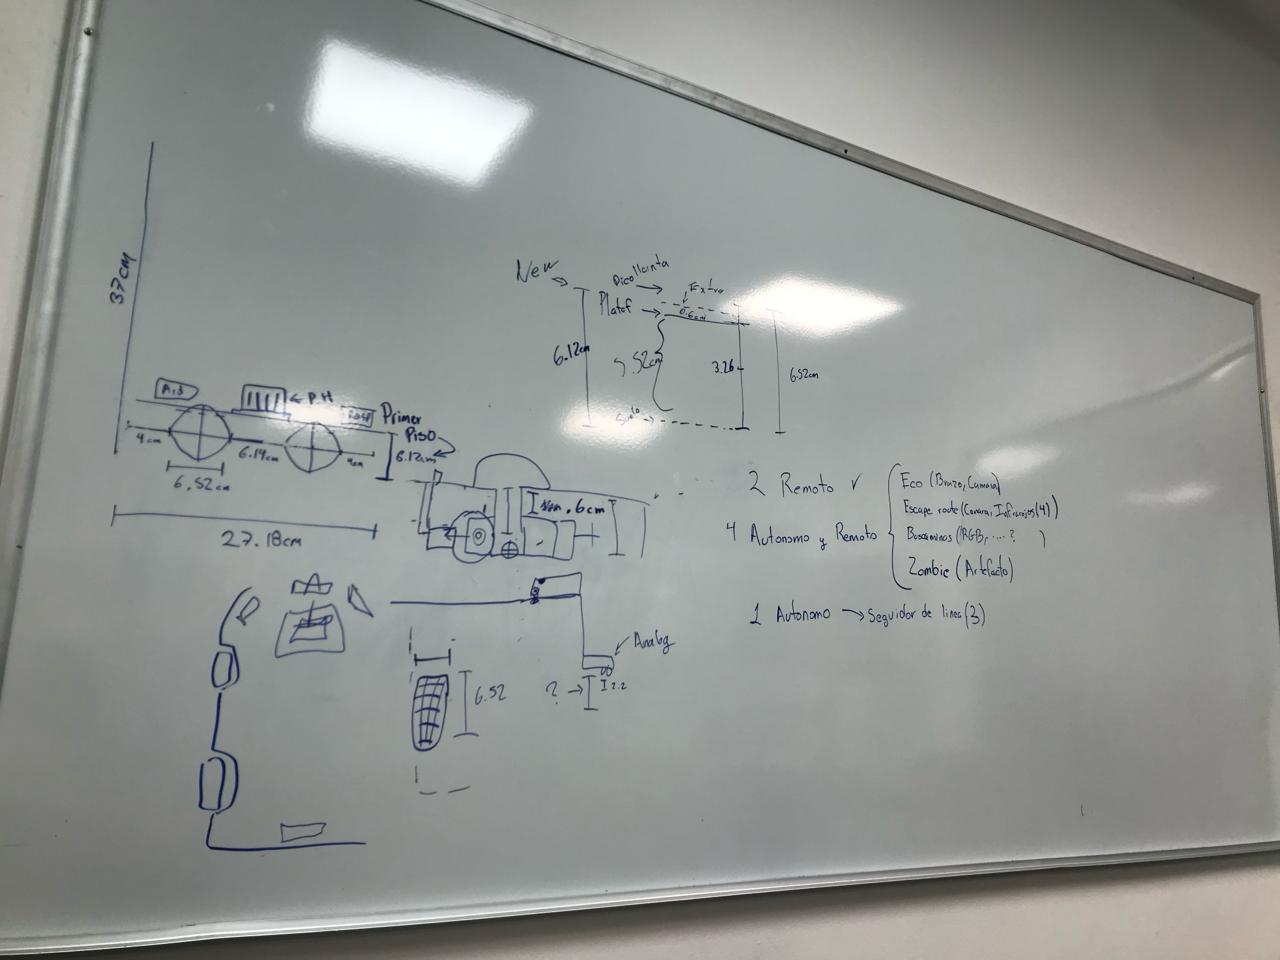 37cm
Ard
← P.H
Rasp
Primer
Piso
4cm
6.14cm
4cm
6.12cm
6.52cm
27.18cm
New
Pico llanta →
Extra
Platef →
0.6cm
6.12cm
5.52cm
3.26
6.52cm
Suelo →
.6cm
6.52
Analog
? →
2.2
2 Remoto ✓
4 Autonomo y Remoto
Eco (Brazo, Camara)
Escape route (Camara, Infrarrojos (4))
Buscaminas (RGB, ....? )
Zombie (Artefacto)
1 Autonomo → Seguidor de linea (3)